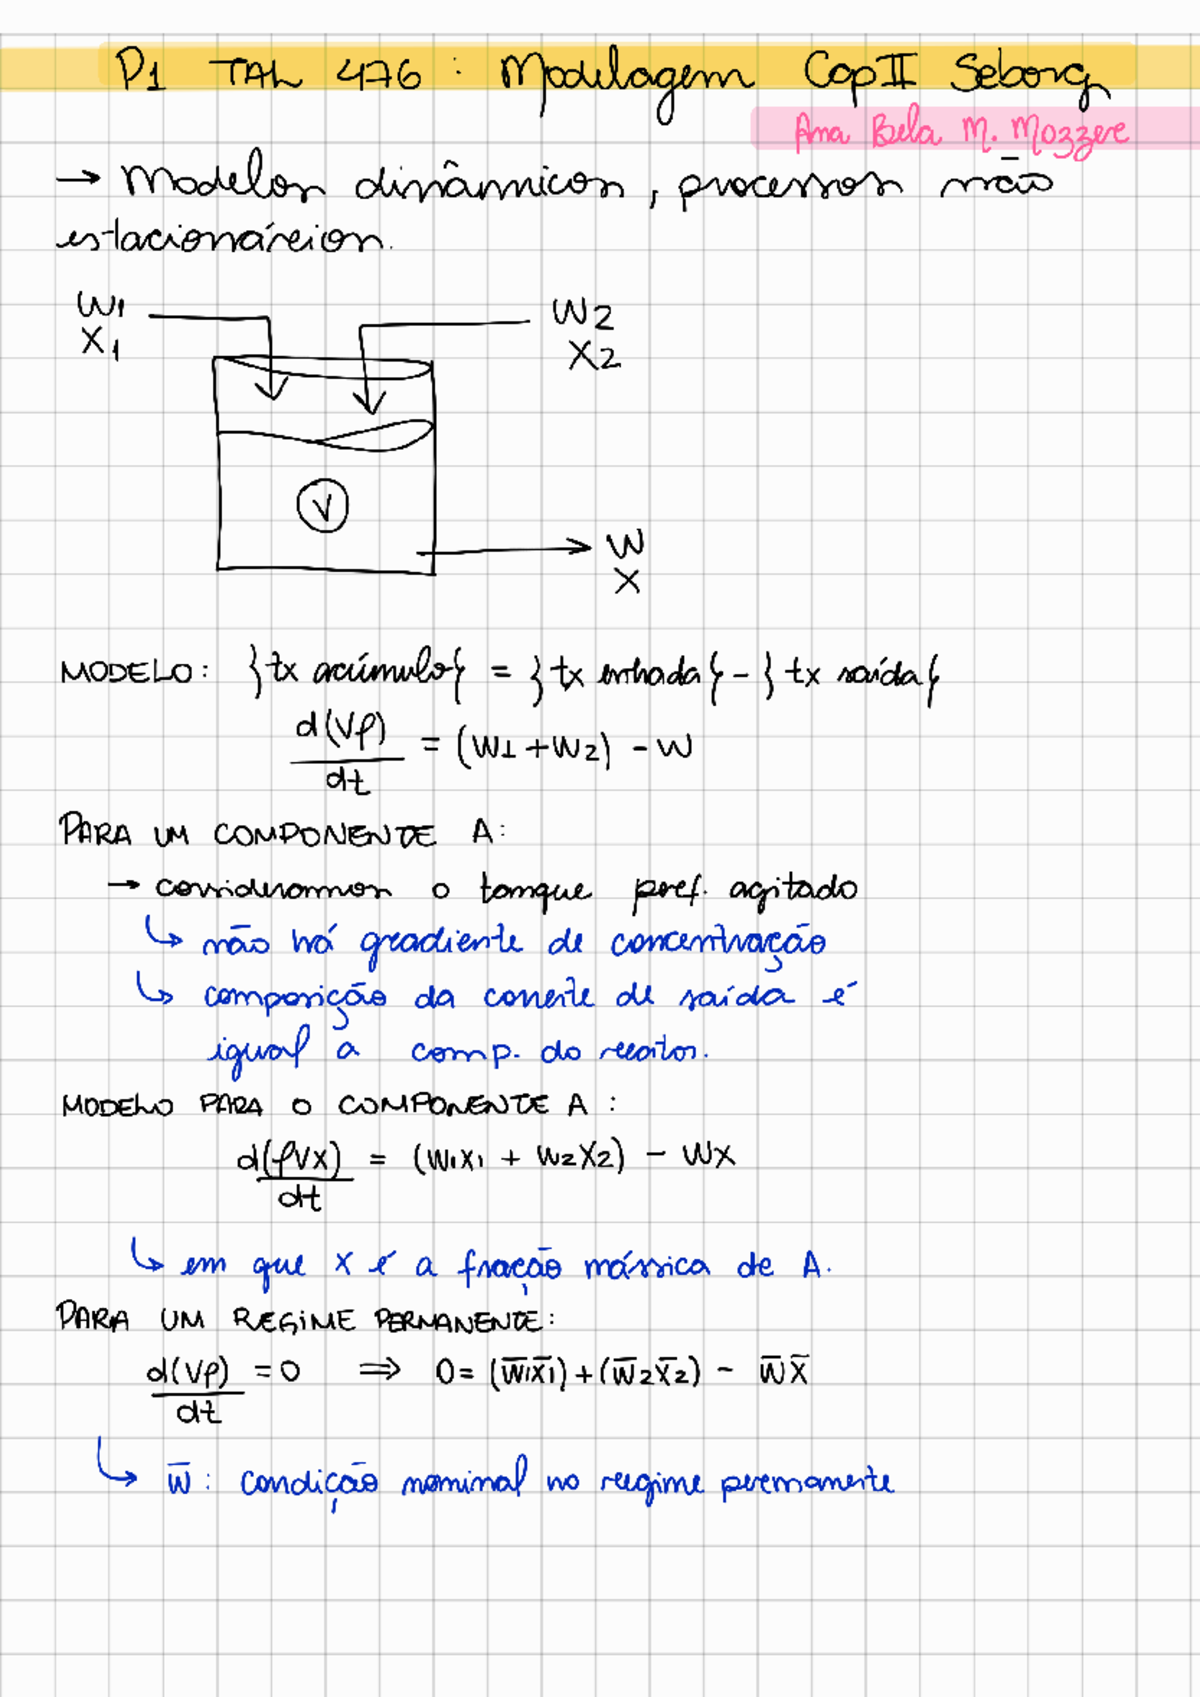 P1 TAL 476 : Modelagem Cap II Seborg
Ana Bela M. Mozzer
→ Modelos dinâmicos, processos não
estacionários.
W1
X1
W2
X2
V
W
X
MODELO: }tx acúmulo{ = }tx entrada{ - }tx saída{
d(Vρ)/dt = (W1 + W2) - W
PARA UM COMPONENTE A:
→ consideramos o tanque perf. agitado
↳ não há gradiente de concentração
↳ composição da corrente de saída é
igual a comp. do reator.
MODELO PARA O COMPONENTE A :
d(ρVx)/dt = (W1X1 + W2X2) - WX
↳ em que x é a fração mássica de A.
PARA UM REGIME PERMANENTE:
d(Vρ)/dt = 0 ⇒ 0 = (W̅1X̅1) + (W̅2X̅2) - W̅X̅
↳ w̅ : condição nominal no regime permanente